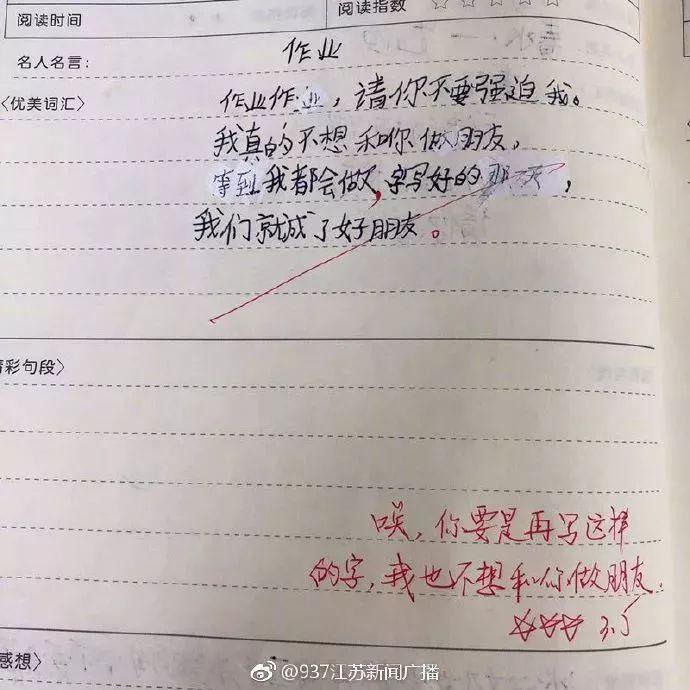 阅读时间
阅读指数
名人名言：
作业
〈优美词汇〉
作业作业，请你不要强迫我。
我真的不想和你做朋友，
等到我都会做，字写好的那天，
我们就成了好朋友。
精彩句段〉
唉，你要是再写这样
的字，我也不想和你做朋友。
☆☆☆ 3.5
感想〉
@937江苏新闻广播